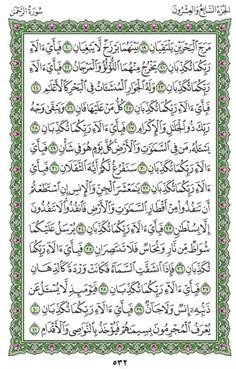 الجزء السابع والعشرون سورة الرحمن
مَرَجَ ٱلْبَحْرَيْنِ يَلْتَقِيَانِ ١٩ بَيْنَهُمَا بَرْزَخٌ لَّا يَبْغِيَانِ ٢٠ فَبِأَىِّ ءَالَآءِ
رَبِّكُمَا تُكَذِّبَانِ ٢١ يَخْرُجُ مِنْهُمَا ٱللُّؤْلُؤُ وَٱلْمَرْجَانُ ٢٢ فَبِأَىِّ ءَالَآءِ
رَبِّكُمَا تُكَذِّبَانِ ٢٣ وَلَهُ ٱلْجَوَارِ ٱلْمُنشَـَٔاتُ فِى ٱلْبَحْرِ كَٱلْأَعْلَـٰمِ ٢٤
فَبِأَىِّ ءَالَآءِ رَبِّكُمَا تُكَذِّبَانِ ٢٥ كُلُّ مَنْ عَلَيْهَا فَانٍ ٢٦ وَيَبْقَىٰ وَجْهُ
رَبِّكَ ذُو ٱلْجَلَـٰلِ وَٱلْإِكْرَامِ ٢٧ فَبِأَىِّ ءَالَآءِ رَبِّكُمَا تُكَذِّبَانِ ٢٨
يَسْـَٔلُهُۥ مَن فِى ٱلسَّمَـٰوَٰتِ وَٱلْأَرْضِ كُلَّ يَوْمٍ هُوَ فِى شَأْنٍ ٢٩ فَبِأَىِّ
ءَالَآءِ رَبِّكُمَا تُكَذِّبَانِ ٣٠ سَنَفْرُغُ لَكُمْ أَيُّهَ ٱلثَّقَلَانِ ٣١ فَبِأَىِّ ءَالَآءِ
رَبِّكُمَا تُكَذِّبَانِ ٣٢ يَـٰمَعْشَرَ ٱلْجِنِّ وَٱلْإِنسِ إِنِ ٱسْتَطَعْتُمْ
أَن تَنفُذُوا۟ مِنْ أَقْطَارِ ٱلسَّمَـٰوَٰتِ وَٱلْأَرْضِ فَٱنفُذُوا۟ لَا تَنفُذُونَ
إِلَّا بِسُلْطَـٰنٍ ٣٣ فَبِأَىِّ ءَالَآءِ رَبِّكُمَا تُكَذِّبَانِ ٣٤ يُرْسَلُ عَلَيْكُمَا
شُوَاظٌ مِّن نَّارٍ وَنُحَاسٌ فَلَا تَنتَصِرَانِ ٣٥ فَبِأَىِّ ءَالَآءِ رَبِّكُمَا
تُكَذِّبَانِ ٣٦ فَإِذَا ٱنشَقَّتِ ٱلسَّمَآءُ فَكَانَتْ وَرْدَةً كَٱلدِّهَانِ
٣٧ فَبِأَىِّ ءَالَآءِ رَبِّكُمَا تُكَذِّبَانِ ٣٨ فَيَوْمَئِذٍ لَّا يُسْـَٔلُ عَن
ذَنۢبِهِۦٓ إِنسٌ وَلَا جَآنٌّ ٣٩ فَبِأَىِّ ءَالَآءِ رَبِّكُمَا تُكَذِّبَانِ ٤٠
يُعْرَفُ ٱلْمُجْرِمُونَ بِسِيمَـٰهُمْ فَيُؤْخَذُ بِٱلنَّوَٰصِى وَٱلْأَقْدَامِ ٤١
٥٣٢